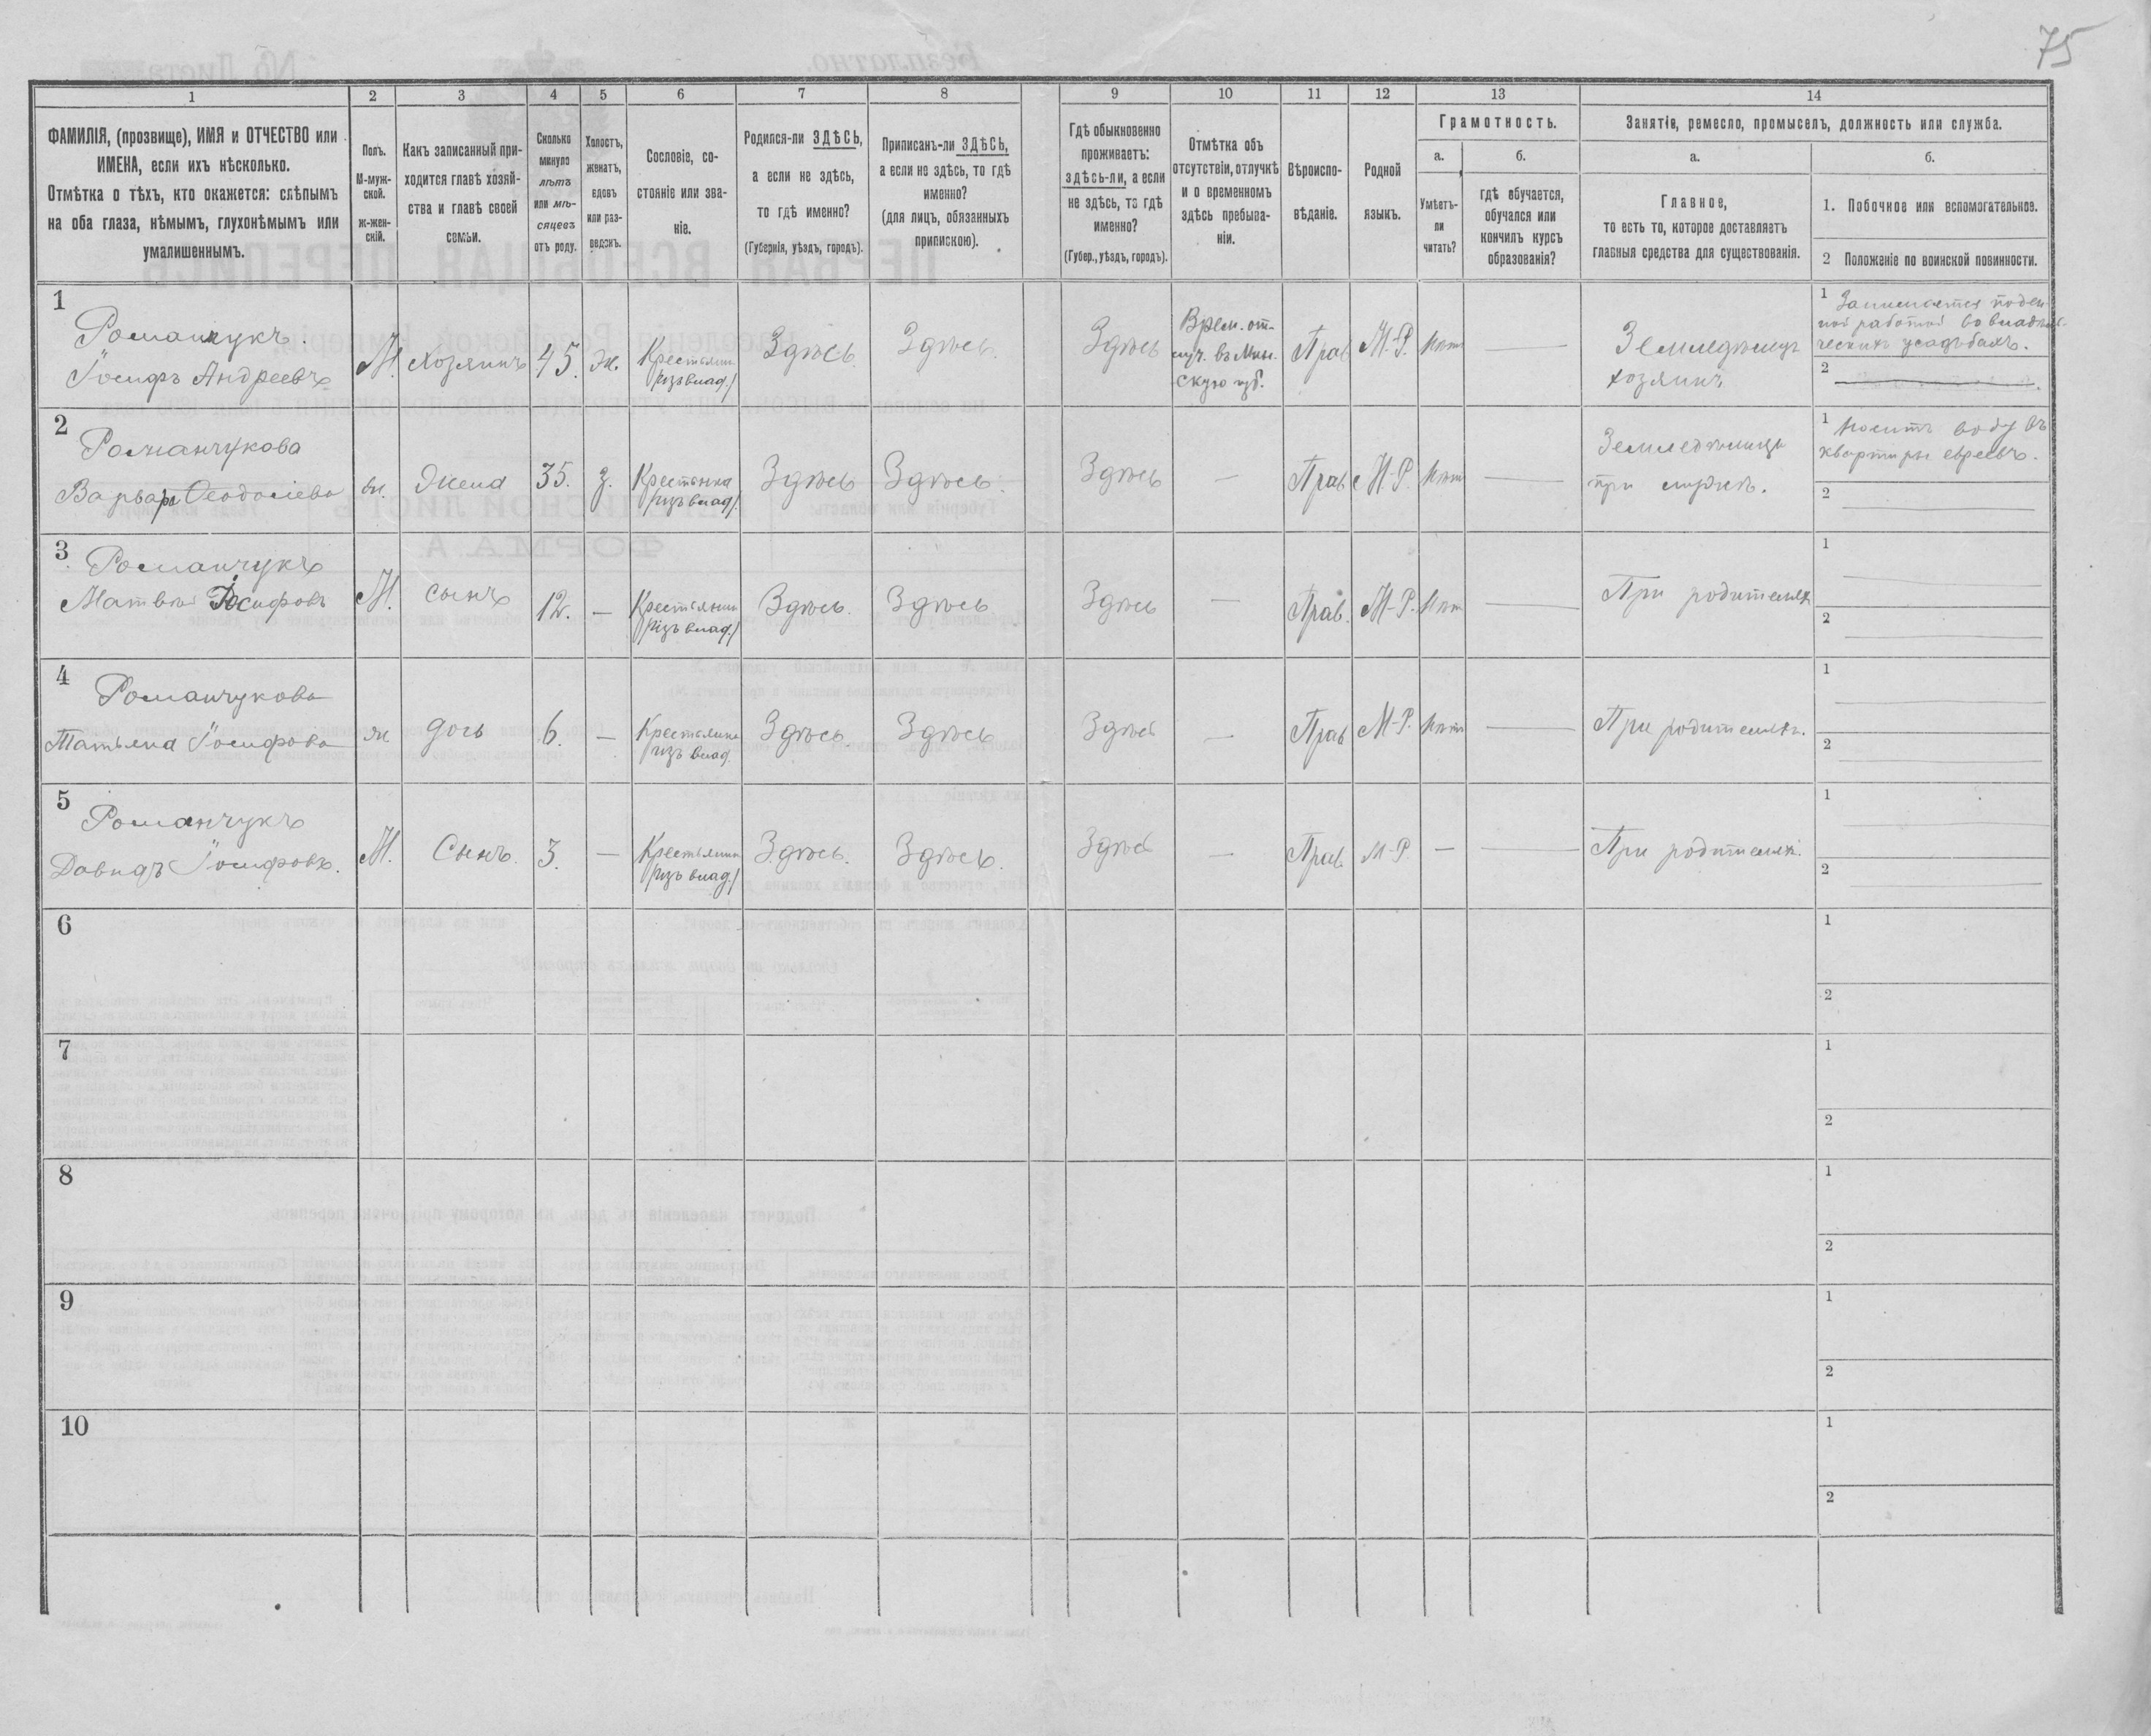 75
1 2 3 4 5 6 7 8 9 10 11 12 13 14
ФАМИЛІЯ, (прозвище), ИМЯ и ОТЧЕСТВО или
ИМЕНА, если ихъ нѣсколько.
Отмѣтка о тѣхъ, кто окажется: слѣпымъ
на оба глаза, нѣмымъ, глухонѣмымъ или
умалишеннымъ.
Полъ.
М-муж-
ской.
ж-жен-
скій.
Какъ записанный при-
ходится главѣ хозяй-
ства и главѣ своей
семьи.
Сколько
минуло
лѣтъ
или мѣ-
сяцевъ
отъ роду.
Холостъ,
женатъ,
вдовъ
или раз-
веденъ.
Сословіе, со-
стояніе или зва-
ніе.
Родился-ли ЗДѢСЬ,
а если не здѣсь,
то гдѣ именно?
(Губернія, уѣздъ, городъ).
Приписанъ-ли ЗДѢСЬ,
а если не здѣсь, то гдѣ
именно?
(для лицъ, обязанныхъ
припискою).
Гдѣ обыкновенно
проживаетъ:
здѣсь-ли, а если
не здѣсь, то гдѣ
именно?
(Губер., уѣздъ, городъ).
Отмѣтка объ
отсутствіи, отлучкѣ
и о временномъ
здѣсь пребыва-
ніи.
Вѣроиспо-
вѣданіе.
Родной
языкъ.
Грамотность.
а.
Умѣетъ-
ли
читать?
б.
гдѣ обучается,
обучался или
кончилъ курсъ
образованія?
Занятіе, ремесло, промыселъ, должность или служба.
а.
Главное,
то есть то, которое доставляетъ
главныя средства для существованія.
б.
1. Побочное или вспомогательное.
2 Положеніе по воинской повинности.
1
Романчукъ
Іосифъ Андреевъ
М. хозяинъ 45. ж.
Крестьянин
/изъ влад./
Здѣсь Здѣсь Здѣсь
Врем. от-
луч. въ Мин-
скую губ.
Прав М-Р. Нѣт
Земледѣлецъ
хозяинъ
1 Занимается поден-
ной работой во владѣль-
ческихъ усадьбахъ.
2
2
Романчукова
Варвара
жена 35. з.
Крестьянка
/изъ влад/
Здѣсь Здѣсь Здѣсь
Прав М-Р. Нѣт
Земледѣлица
при мужѣ.
1 Носитъ воду въ
квартиры евреевъ.
2
3
Романчукъ
Матвей Іосифовъ
М. сынъ 12.
Крестьянин
/изъ влад/
Здѣсь. Здѣсь Здѣсь
Прав. М-Р. Нѣт
При родителяхъ
1
2
4
Романчукова
Татьяна Іосифова
ж дочь 6.
Крестьянка
/изъ влад.
Здѣсь. Здѣсь Здѣсь
Прав М-Р. Нѣт
При родителяхъ.
1
2
5
Романчукъ
Давидъ Іосифовъ.
М. Сынъ. 3.
Крестьянин
/изъ влад./
Здѣсь. Здѣсь. Здѣсь
Прав. М-Р
При родителяхъ.
1
2
6
1
2
7
1
2
8
1
2
9
1
2
10
1
2